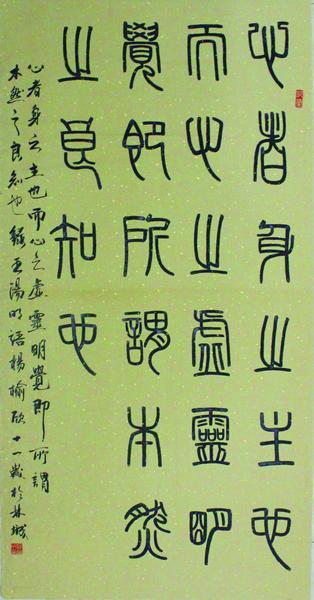 心者身之主也
而心之虛靈明
覺即所謂本然
之良知也
心者身之主也而心之虛靈明覺即所謂
本然之良知也錄王陽明語楊榆欣十一歲於林城